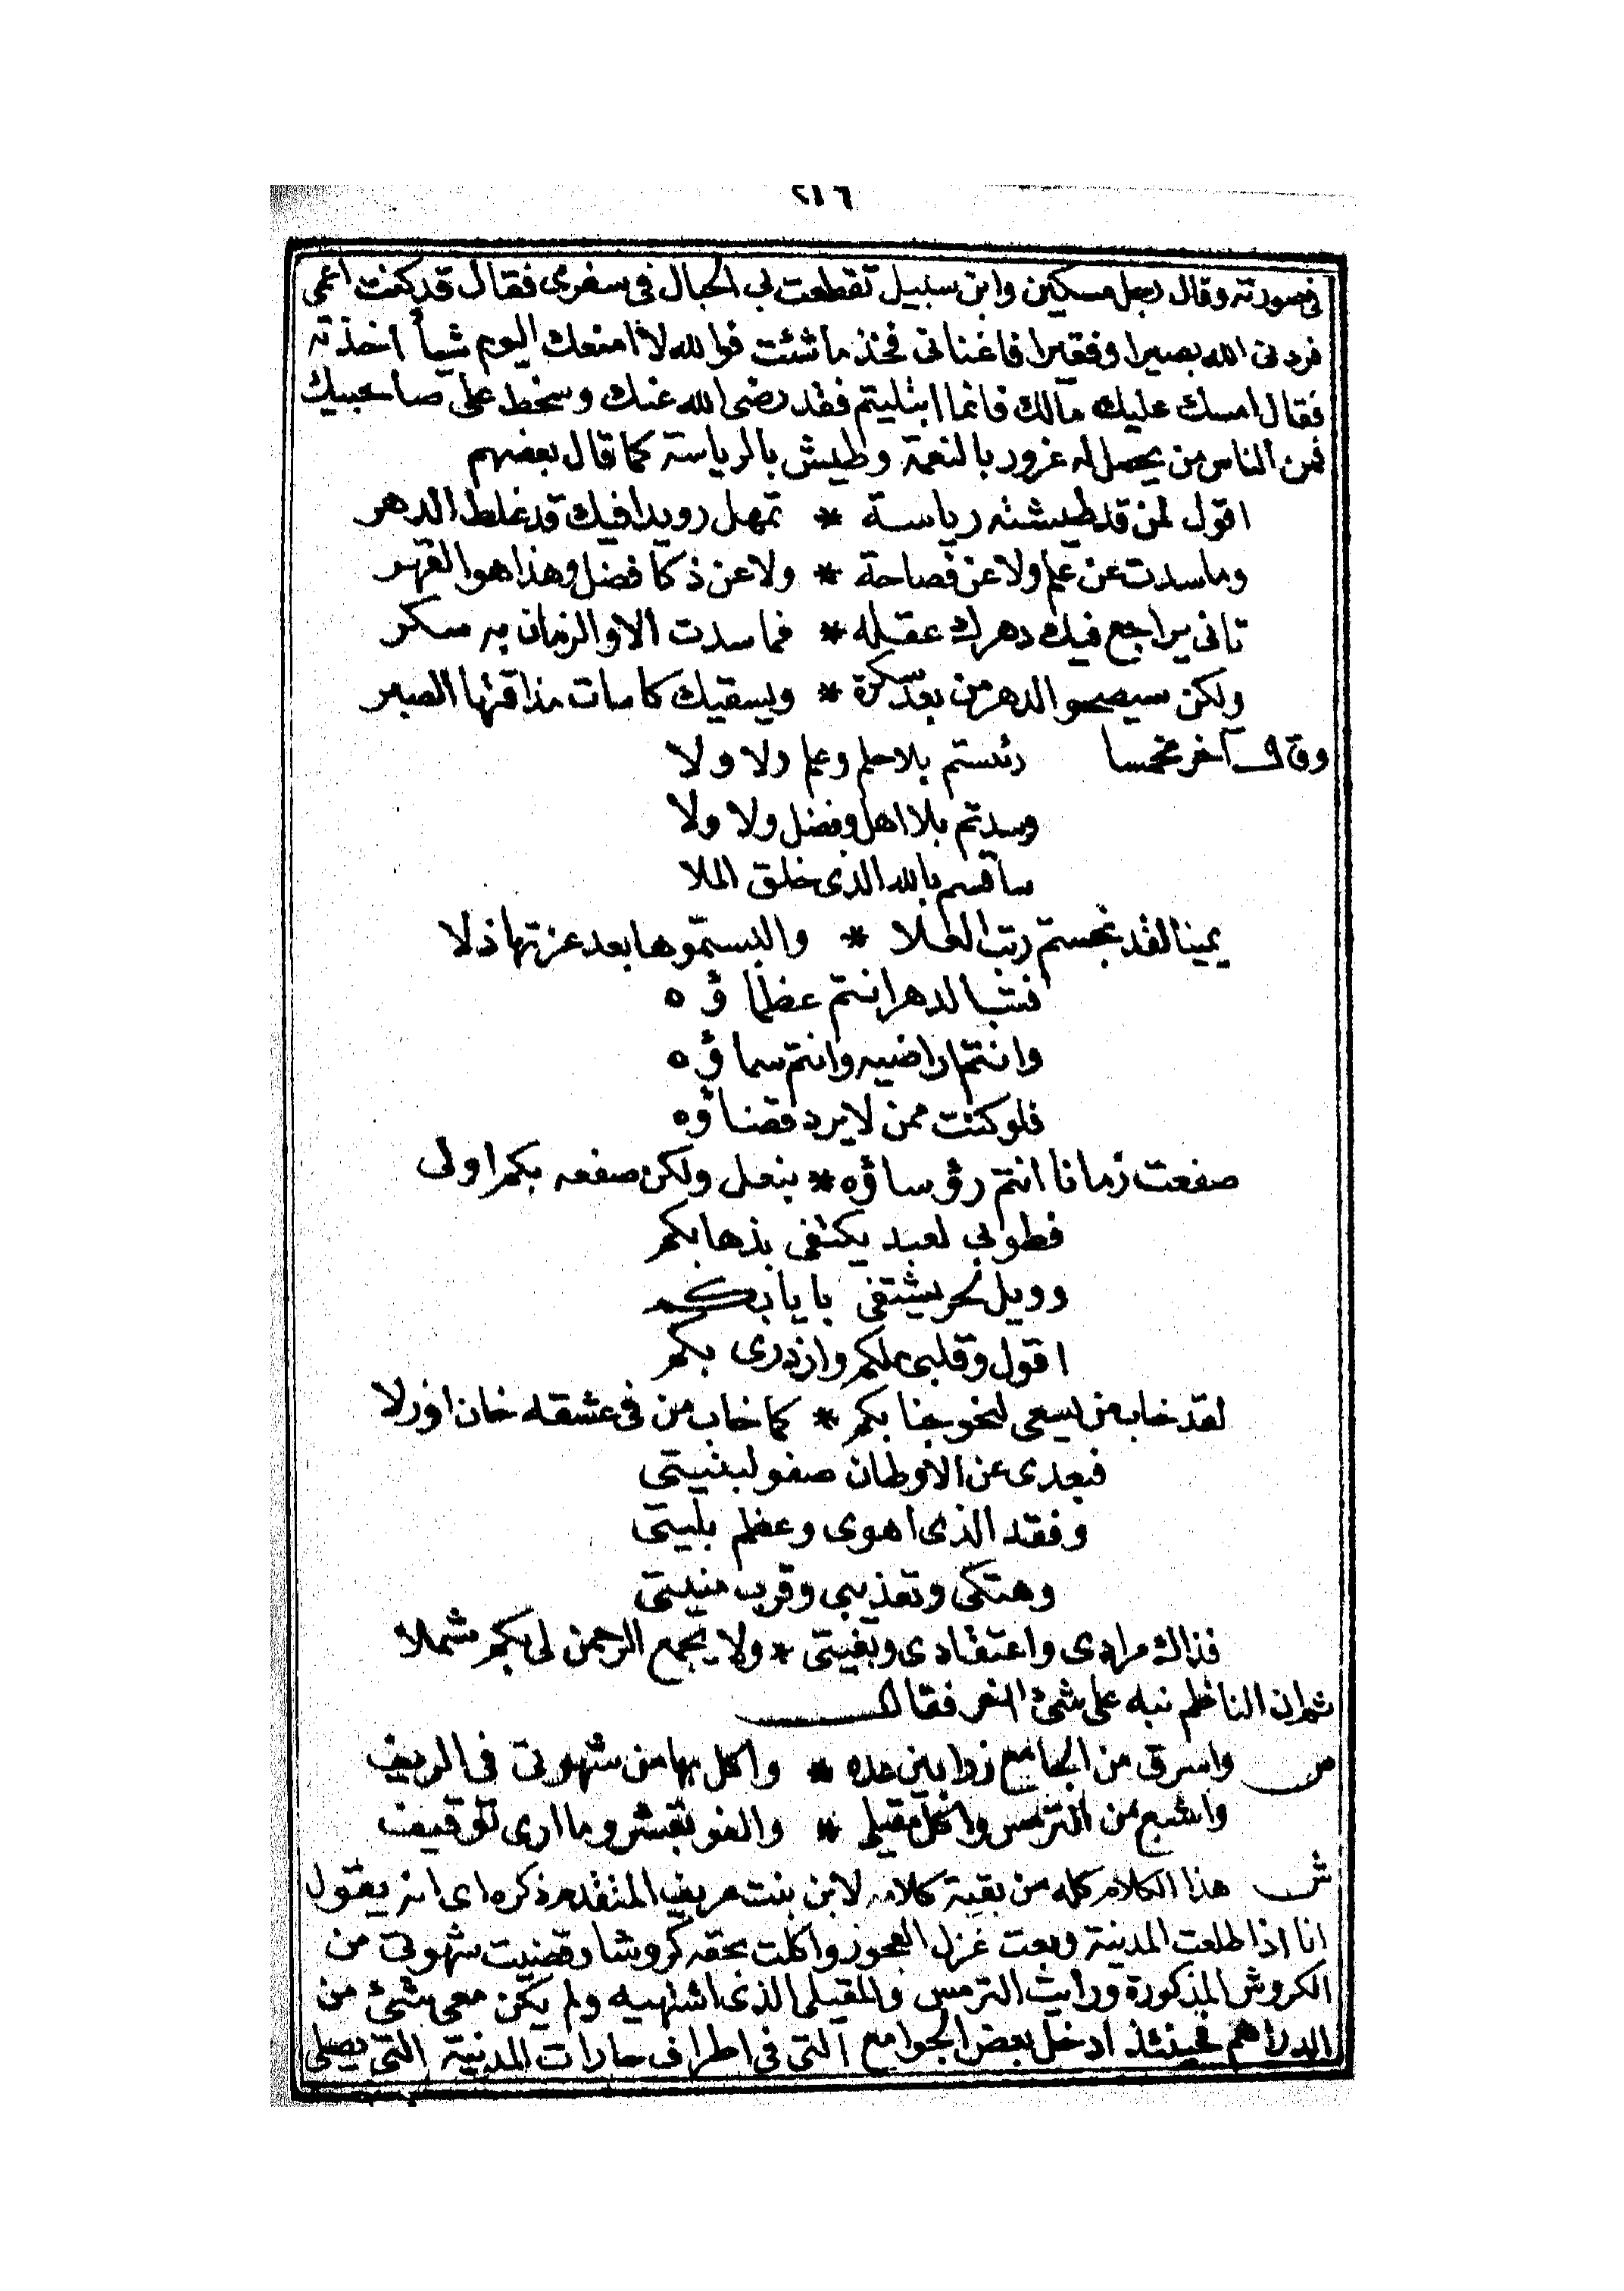 ٢١٦
فى صورته وقال رجل مسكين وابن سبيل تقطعت بى الحبال فى سفرى فقال قد كنت اعمى
فردنى الله بصيرا وفقيرا فاغنانى فخذ ما شئت فوالله لا امنعك اليوم شيأ اخذته
فقال امسك عليك مالك فانما ابتليتم فقد رضى الله عنك وسخط على صاحبيك
فمن الناس من يحصل له غرور بالنعمة وطيش بالرياسة كما قال بعضهم
اقول لمن قد طيشته رياسة * تمهل رويدا فيك قد غلط الدهر
وما سدت عن علم ولا عن فصاحة * ولا عن ذكا فضل وهذا هو القهر
تانى يراجع فيك دهرك عقله * فما سدت الا والزمان به سكر
ولكن سيصحو الدهر من بعد سكرة * ويسقيك كاسات مذاقتها الصبر
وقال آخر مخمسا رئستم بلا حلم وعلم ولا ولا
وسدتم بلا اهل وفضل ولا ولا
ساقسم بالله الذى خلق الملا
يمينا لقد نجستم رتب العلا * والبستموها بعد عزتها ذلا
فتبا لدهر انتم عظماؤه
وانتم اراضيه وانتم سماؤه
فلو كنت ممن لا يرد قضاؤه
صفعت زمانا انتم رؤساؤه * بنعل ولكن صفعه بكم اولى
فطوبى لعبد يكتفى بذهابكم
وويل لحر يشتفى بايابكم
اقول وقلبى ملكم وازدرى بكم
لقد خاب من يسعى لنحو جنابكم * كما خاب من فى عشقه خان اورلا
فبعدى عن الاوطان صفو لبنيتى
وفقد الذى اهوى وعظم بليتى
وهتكى وتعذيبى وقرب منيتى
فذاك مرادى واعتقادى وبغيتى * ولا يجمع الرحمن لى بكم شملا
ثم ان الناظم نبه على شئ اخر فقال
ص واسرق من الجامع زرابين عده * واكل بها من شهوتى فى الريف
واشبع من الترمس واكل مقيلى * والفو بقشر وما ارى توقيف
ش هذا الكلام كله من بقية كلامه لابن بنت عريف المتقدم ذكره اى انه يقول
انا اذا طلعت المدينة وبعت غزل العجوز واكلت بحقه كروشا وقضيت شهوتى من
الكروش المذكورة ورايت الترمس والمقيلى الذى اشتهيه ولم يكن معى شئ من
الدراهم فحينئذ ادخل بعض الجوامع التى فى اطراف حارات المدينة التى يصلى